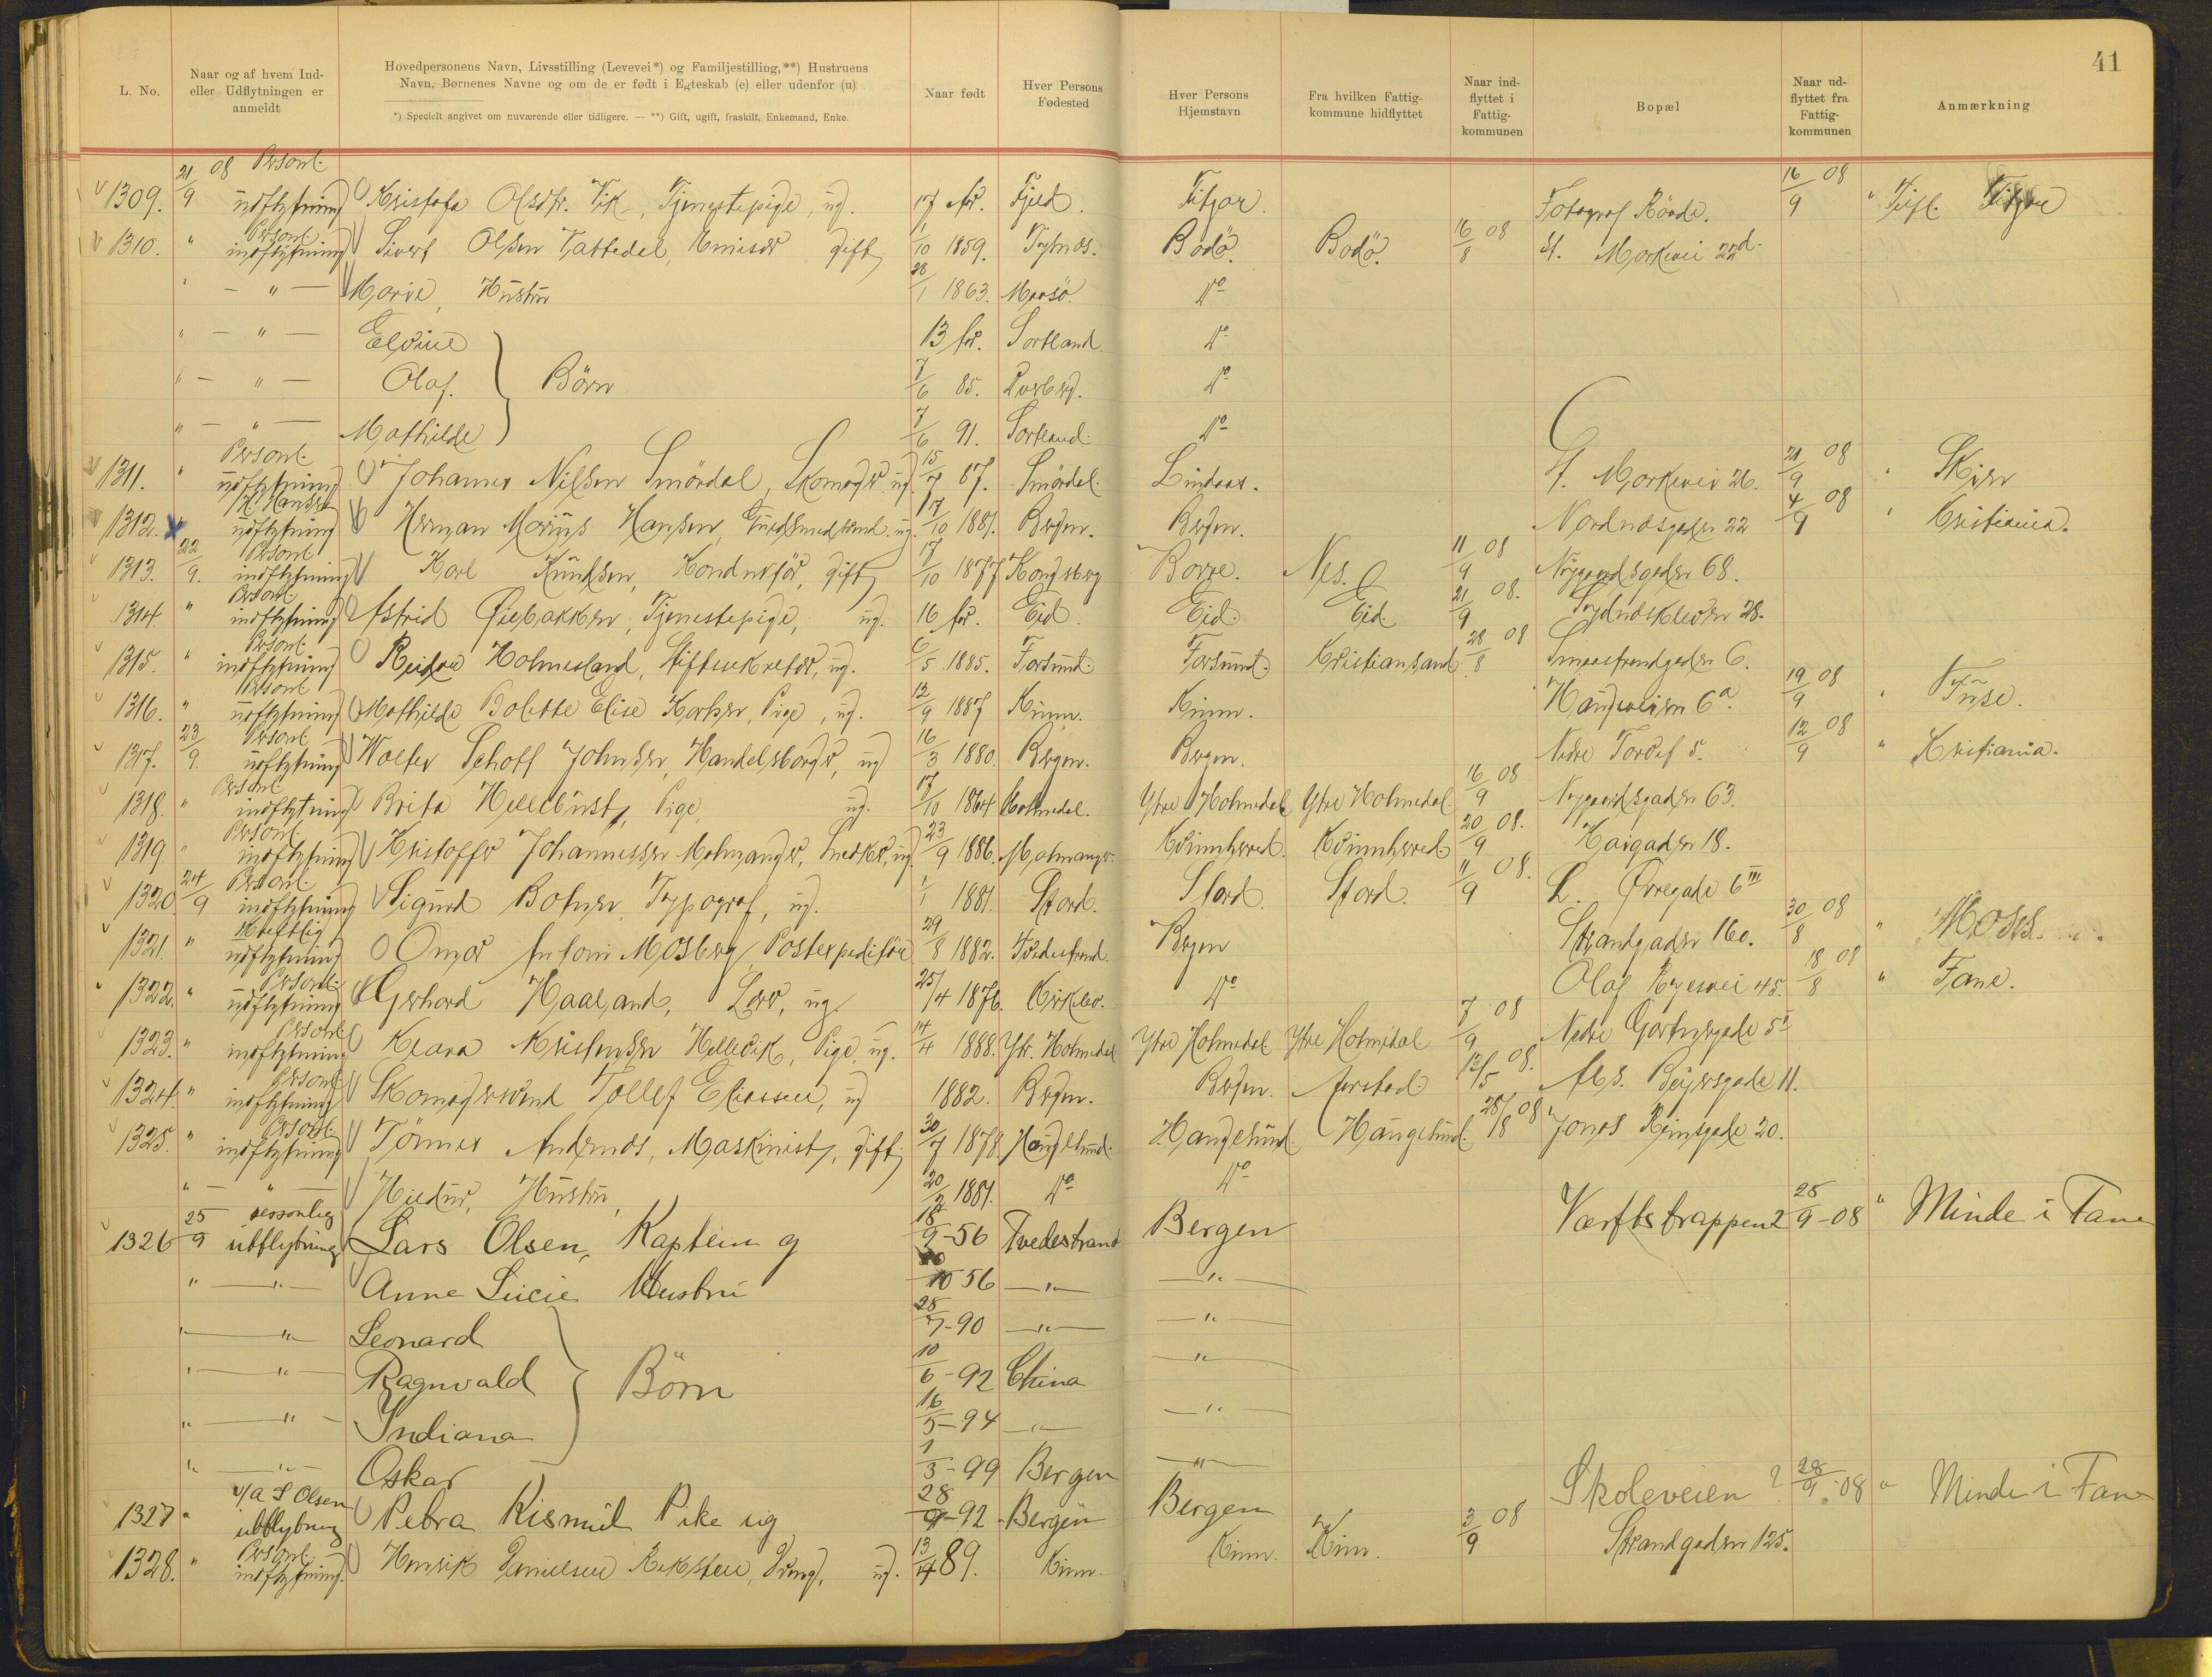 41
L. No. Naar og af hvem Ind- eller Udflytningen er anmeldt Hovedpersonens Navn, Livsstilling (Levevei*) og Familjestilling,**) Hustruens Navn, Børnenes Navne og om de er født i Egteskab (e) eller udenfor (u) Naar født Hver Persons Fødested Hver Persons Hjemstavn Fra hvilken Fattig- kommune hidflyttet Naar ind- flyttet i Fattig- kommunen Bopæl Naar ud- flyttet fra Fattig- kommunen Anmærkning
*) Specielt angivet om nuværende eller tidligere. — **) Gift, ugift, fraskilt, Enkemand, Enke.
1309. 21/9 08 Personl. udflytning Kristofa Olsdtr. Vik, Tjenestepige, ug. 17 år. Fjeld. Fitjar. Fotograf 16/9 08 " Fitjar
1310. " Personl. indflytning Sivert Olsen gift 1/10 1859. Bodö. Bodö. 16/8 08 St. Markevei 22d.
" — " — Marie, Hustru 28/1 1863. Maasö. Do
" — " — Elvine 13 år. Sortland. Do
" — " — Olaf. Börn 7/6 85. Do
" — " — Mathilde 7/6 91. Sortland. Do
1311. " Personl. udflytning Johannes Nilsen Smördal, Skomager, ug. 15/7 87. Smördal. Lindaas. St. Markevei 26. 21/9 08 " Skien
1312. " H. Hansen udflytning Herman Marius Hansen, Guldsmedsvend. ug. 17/10 1881. Bergen. Bergen. Nordnesgaden 22 4/9 08 " Kristiania.
1313. 22/9. Personl. indflytning Karl Knudsen, Konduktör, gift 17/10 1877 Kongsberg Borre. Nes. 11/9 08 Nygaardsgaden 68.
1314. " Personl. indflytning Astrid Öiebakken, Tjenestepige, ug. 16 år. Eid. Eid. Eid. 21/9 08. Sydneskleven 28.
1315. " Personl. indflytning Reidar Holmesland, Stiftsekretær, ug. 6/5 1885. Farsund. Farsund. Kristiansand 28/8 08 Smaastrandgaden 6.
1316. " Personl. udflytning Mathilde Bolette Elise Karlsen, Pige, ug. 12/9 1887 Kinn. Kinn. Haugeveien 6a. 19/9 08 "
1317. 23/9. Personl. udflytning Wolter Schott Johnsen, Handelsborger, ug 16/3 1880. Bergen. Bergen. Nedre 5. 12/9 08 " Kristiania.
1318. " Personl. indflytning Brita Hellebust, Pige, ug. 17/10 1864 Holmedal. Ytre Holmedal Ytre Holmedal. 16/9 08 Nygaardsgaden 63.
1319 " Personl. indflytning Kristoffer Johannessen Malmanger, Snedker, ug 23/9 1886. Malmanger. Kvinnherred. Kvinnherred. 20/9 08. Kaigaden 18.
1320. 24/9 Personl. indflytning Sigurd Botnen, Typograf, ug. 1/1 1881. Stord. Stord. Stord. 11/9 08. L. Övregade 6III
1321. " Skriftlig udflytning Omar Antoni Mosberg, Postexpeditör 29/8 1882. Tvedestrand. Bergen Strandgaden 160. 30/8 08 " Moss.
1322. " Personl. udflytning Gerhard Haaland, Lærer, ug. 25/4 1876. Kirkevo. Do Olaf Ryesvei 45. 18/8 08 " Fane.
1323. " Personl. indflytning Klara Kristensen Hellevik, Pige, ug. 14/4 1888. Ytr. Holmedal Ytre Holmedal Ytre Holmedal 7/9 08 Nedre Gartnergade 5
1324. " Personl. indflytning Skomagersvend Tollef Eliassen, ug 1882. Bergen. Bergen. Aarstad. 13/5 08. Abs. Beijersgade 11.
1325. " Personl. indflytning Tönnes Andenæs, Maskinist, gift 30/7 1878. Haugesund. Haugesund. Haugesund. 28/8 08 Jonas Reinsgade 20.
" — " — Hildur, Hustru, 20/2 1881. Do Do
1326 25/9 personlig utflytning Lars Olsen, Kaptein g 18/9-56 Tvedestrand Bergen Værftstrappen 2 25/9-08 " Minde i Fane
" — " — Anne Lucie Hustru 10 56 — " — — " —
" — " — Leonard 28/7-90 — " — — " —
" — " — Ragnvald Börn 10/6-92 China — " —
" — " — Indiana 16/5-94 — " — — " —
" — " — Oskar 1/3-99 Bergen — " —
1327 " v/a L Olsen utflytning Petra Kismul Pike ug 28/9-92 Bergen Bergen Skoleveien ? 28/9-08 " Minde i Fane
1328. " Personl. indflytning. Henrik Danielsen Reksten, Dreng, ug. 13/4 89. Kinn. Kinn. Kinn. 3/9 08 Strandgaden 125.